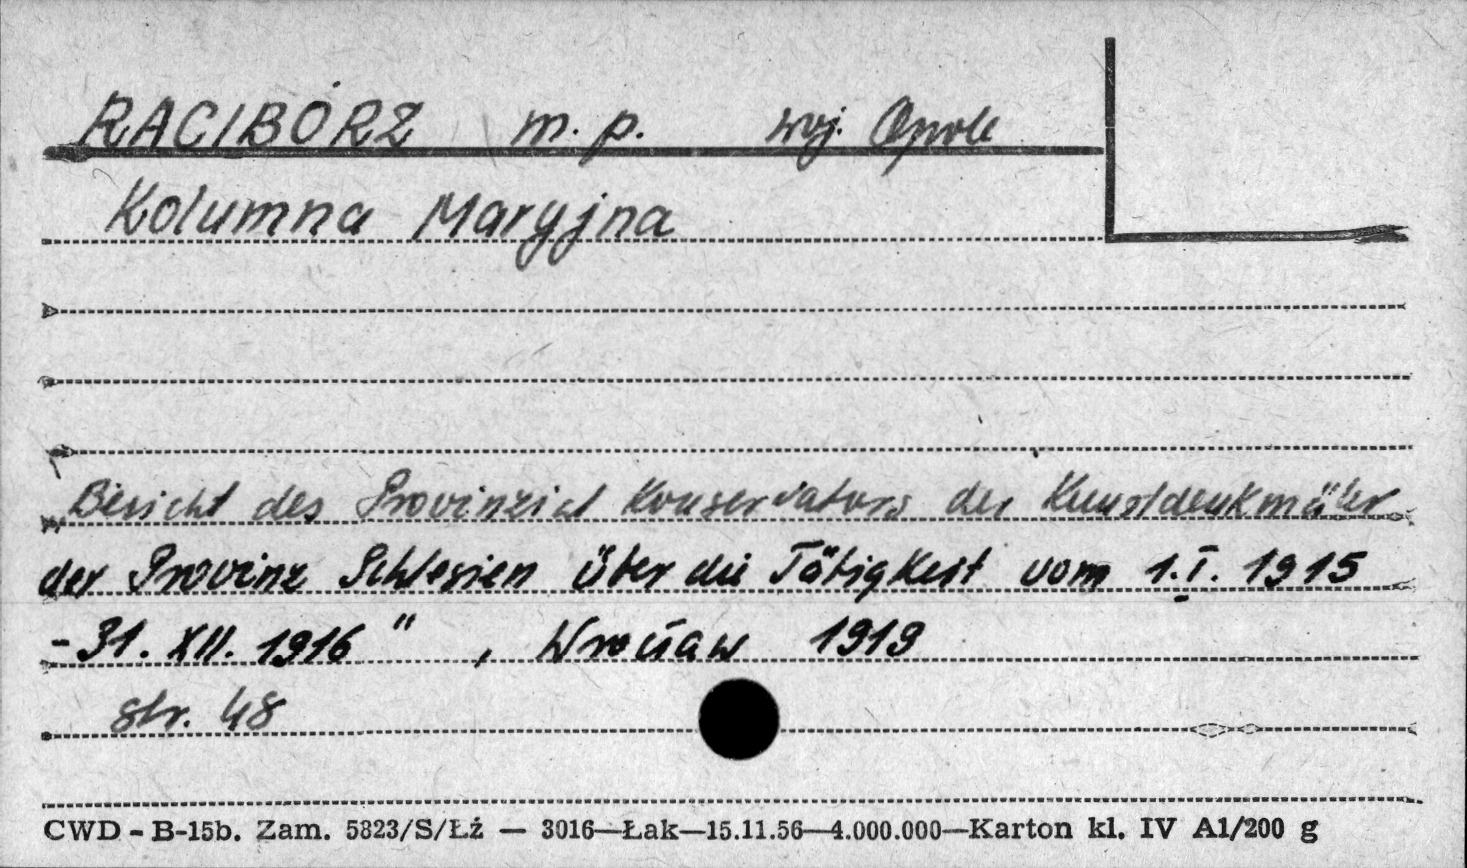 RACIBÓRZ m. p. woj. Opole
Kolumna Maryjna
"Bericht des Provinzial Konservators der Kunstdenkmäler
der Provinz Schlesien über die Tätigkeit vom 1.I. 1915
-31. XII. 1916", Wrocław 1919
str. 48
CWD - B-15b. Zam. 5823/S/Łź — 3016—Łak—15.11.56—4.000.000—Karton kl. IV A1/200 g